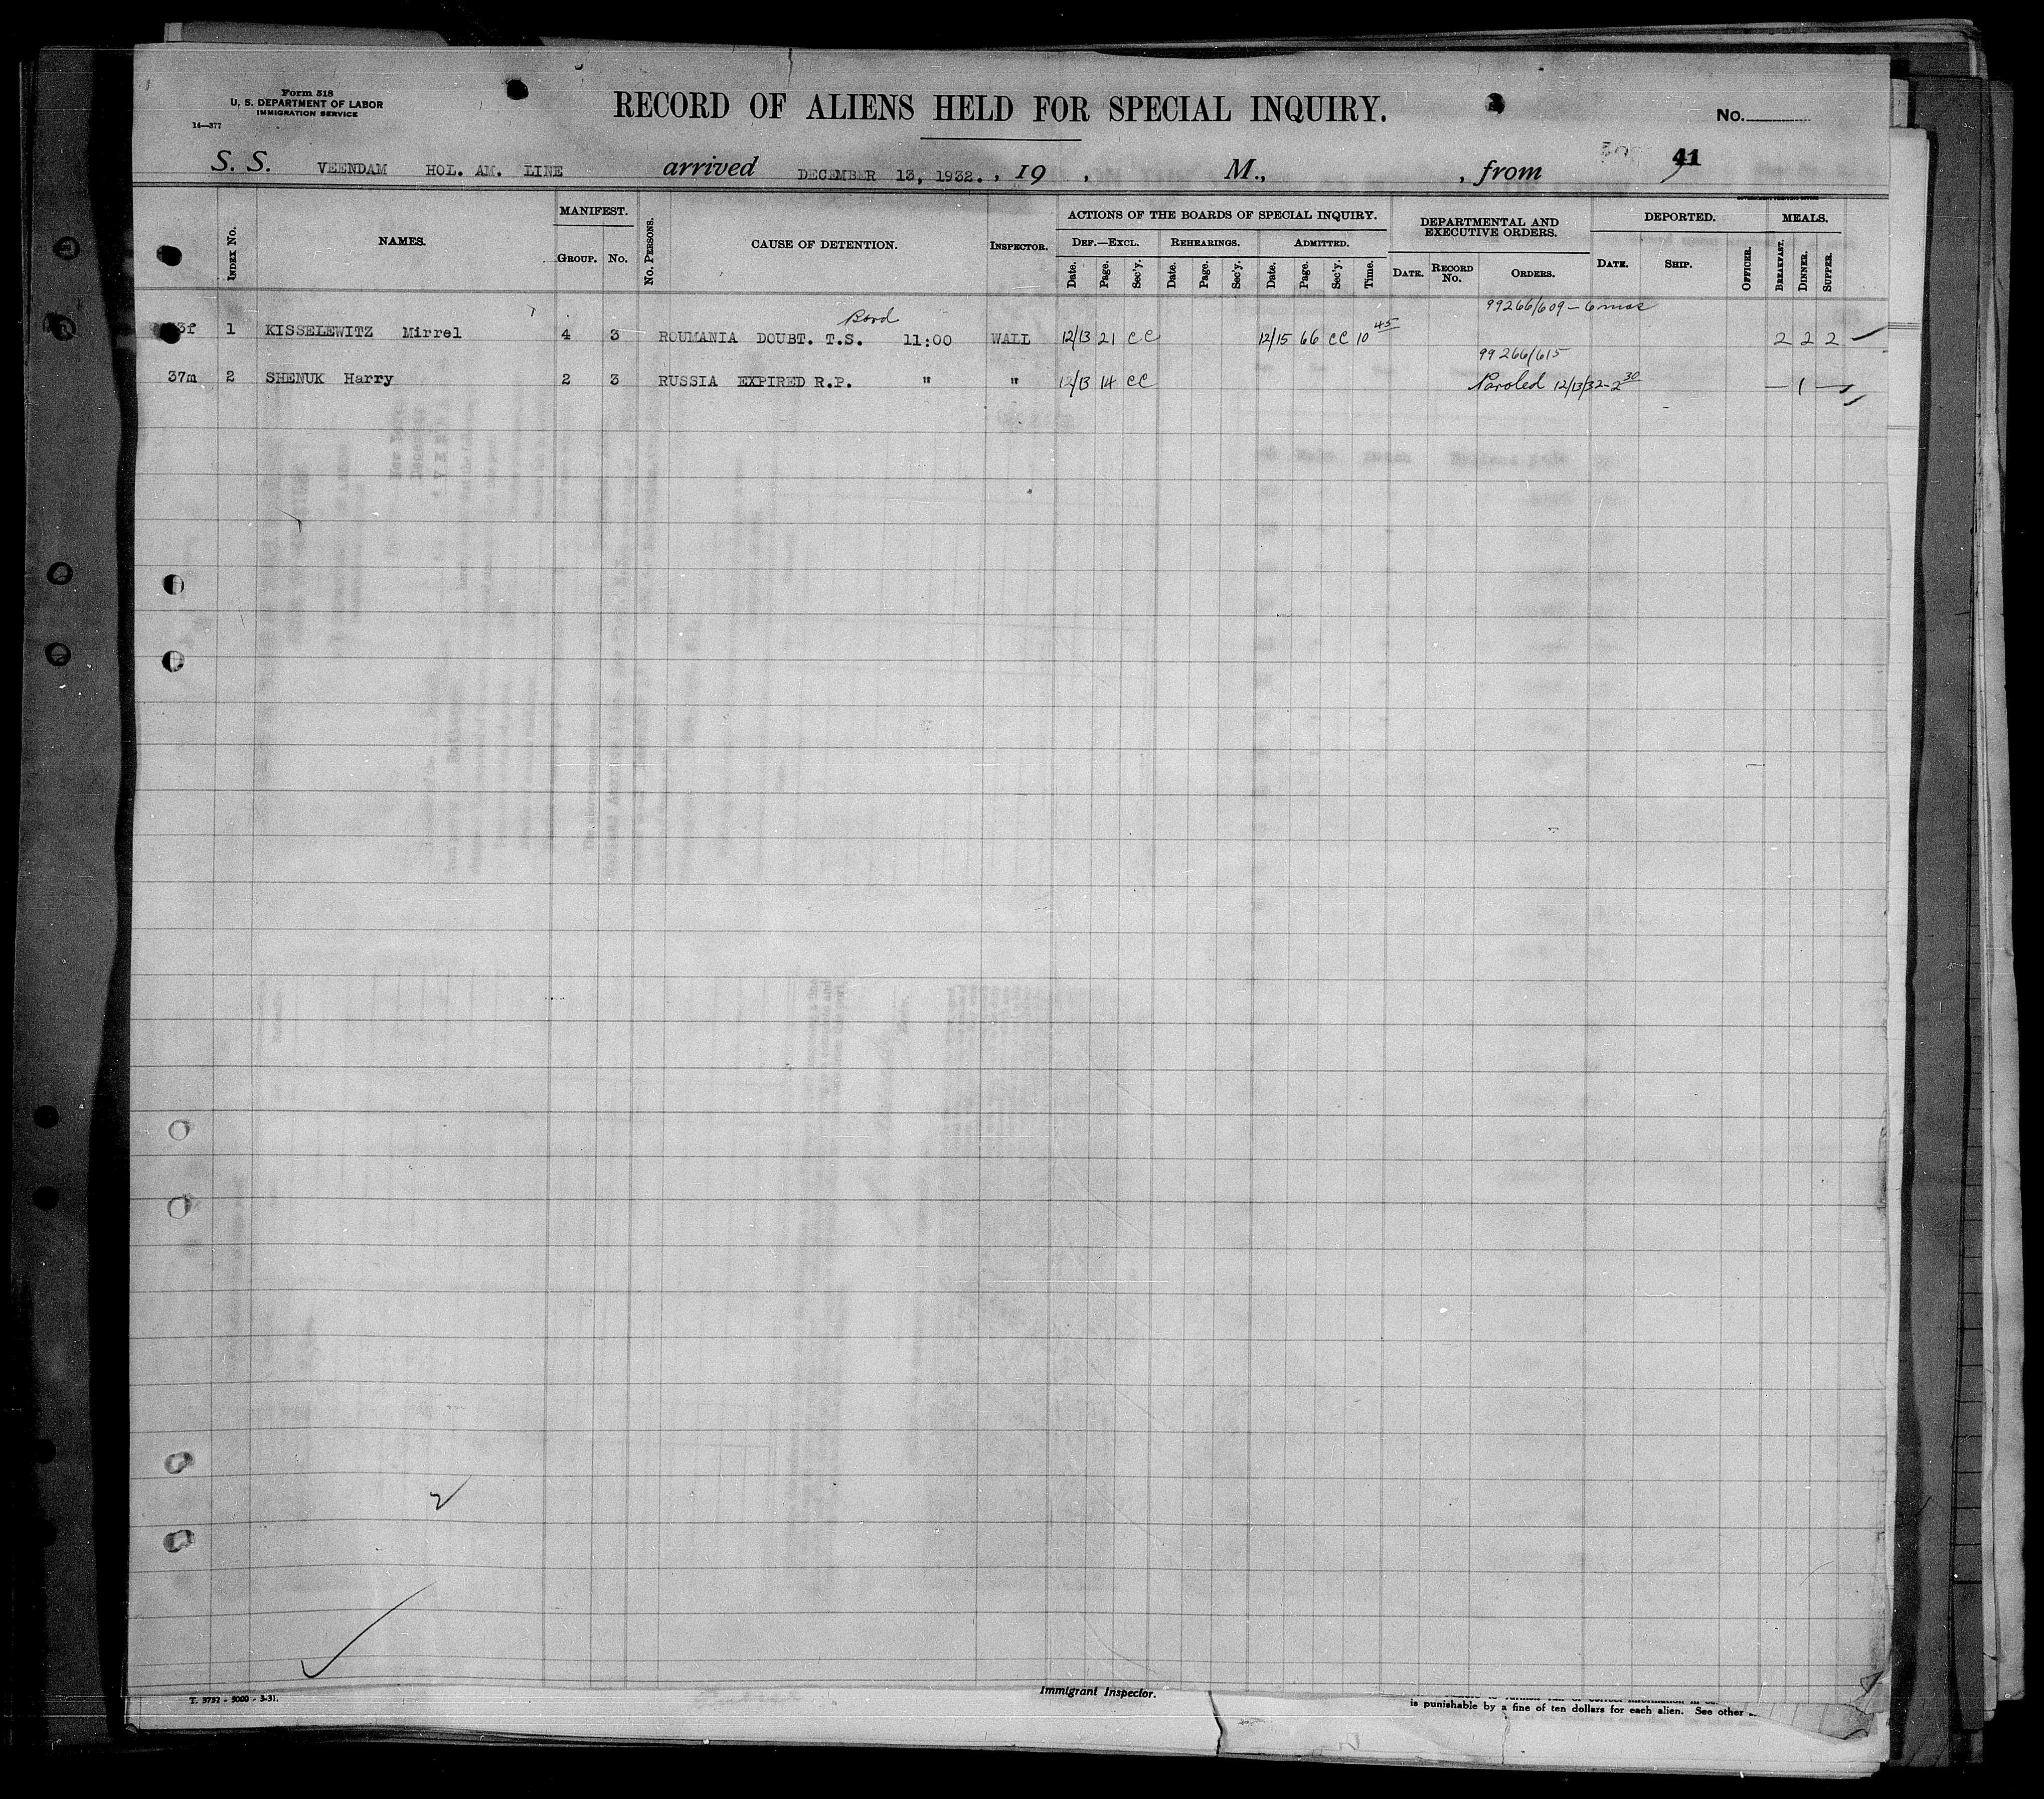 Form 518
U. S. DEPARTMENT OF LABOR
IMMIGRATION SERVICE
14—377
RECORD OF ALIENS HELD FOR SPECIAL INQUIRY.
No.
S. S. VEENDAM HOL. AM. LINE arrived DECEMBER 13, 1932. , 19 , M., , from 41
INDEX No. NAMES. MANIFEST. GROUP. No. No. PERSONS. CAUSE OF DETENTION. INSPECTOR.
ACTIONS OF THE BOARDS OF SPECIAL INQUIRY.
DEF.—EXCL. Date. Page. Sec'y. REHEARINGS. Date. Page. Sec'y. ADMITTED. Date. Page. Sec'y. Time.
DEPARTMENTAL AND EXECUTIVE ORDERS. DATE. RECORD No. ORDERS.
DEPORTED. DATE. SHIP. OFFICER.
MEALS. BREAKFAST. DINNER. SUPPER.
Bond 99266/609 - 6 mos
3f 1 KISSELEWITZ Mirrel 4 3 ROUMANIA DOUBT. T.S. 11:00 WALL 12/13 21 CC 12/15 66 CC 10 45 2 2 2
99266/615
37m 2 SHENUK Harry 2 3 RUSSIA EXPIRED R.P. " " 12/13 14 CC Paroled 12/13/32-2 30 — 1 —
2
T. 3732 - 5000 - 3-31.
Immigrant Inspector.
is punishable by a fine of ten dollars for each alien. See other